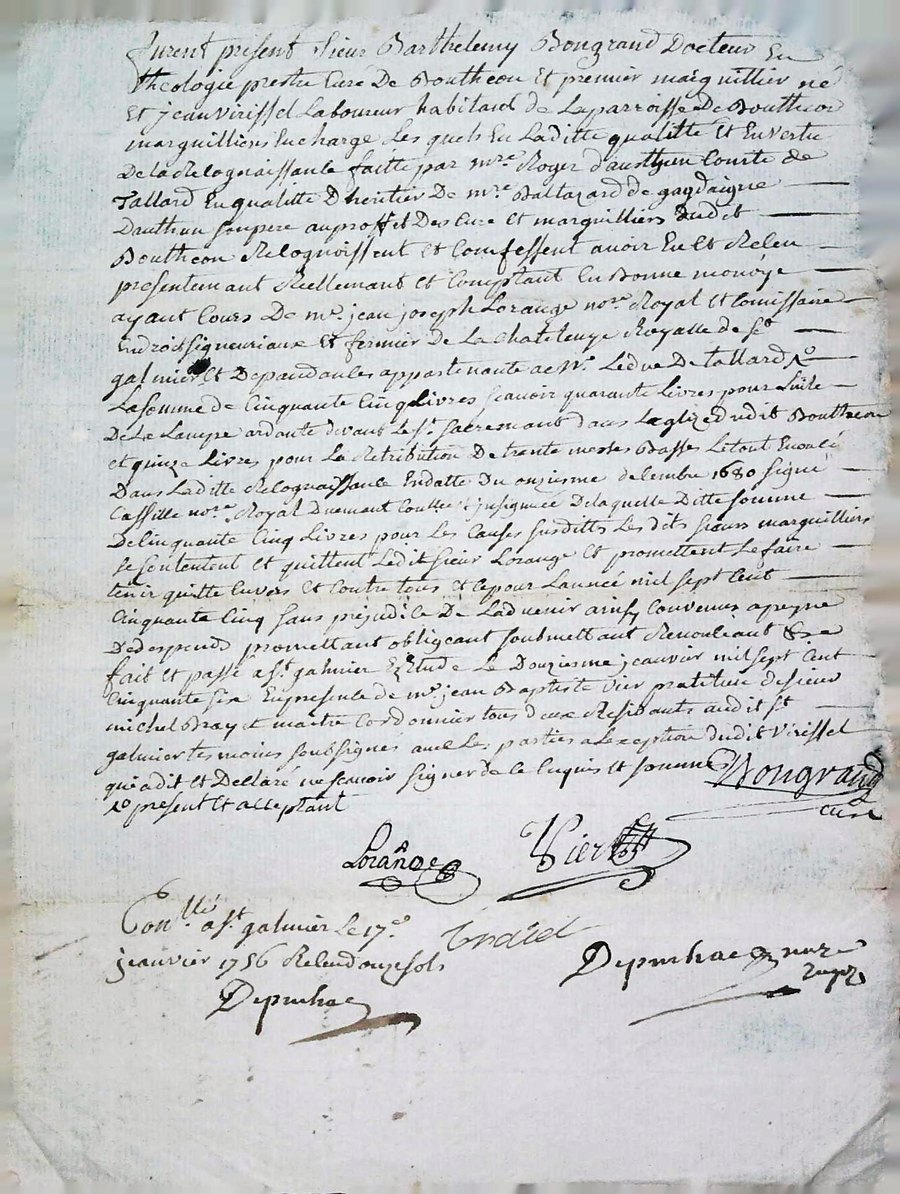 furent présent sieur Barthelemy Bongrand Docteur En
theologie prestre Curé De Boutheon Et premier marguillier né
Et jean virissel Laboureur habitand de La parroisse De Boutheon
marguilliers En charge Les quels En Laditte qualitté Et En vertu
De la Relognaissance faitte par mre Roger d'austhun Comte de
Tallard En qualitté D'heritier De mre Baltazard de gagdaigne
Dauthun son pere au proffit Des Curé Et marguilliers dudit
Boutheon Relognoissent Et Comfessent avoir Eu Et Releu
présentemant Reellemant Et Comptant En Bonne monoÿe
ayant Cours De me jean joseph Lorange nore Royal Et Comissaire
En droit signeuriaux Et fermier de La chatelenye Royalle de St
galmier Et Dépandances appartenante a Mr Le duc De tallard xo
La somme de Cinquante Cinq Livres scavoir quarante Livres pour Luile
De La Lampe ardante devant Le St sacremant dans Leglize dudit Boutheon
et quinze Livres pour La Retribution De trante messes Basses Le tout Enoncé
Dans Laditte Relognaissance En datte Du onziesme décembre 1680 signé
Cassille nore Royal Duemant Conttrollé insignuée De laquelle Ditte somme
De Cinquante Cinq Livres pour Les Causes susdittes Les dits sieurs marguilliers
se Contentent et quittent Ledit sieur Lorange Et promettent Le faire
tenir quitte Envers Et Contre tous Et Ce pour Lannée mil sept Cent
Cinquante Cinq sans préjudice De Ladvenir ainsy Convenus a peyne
De despends promettant obligeant soubmettant Renonciant &ra
fait Et passé a St galmier Estude Le Douziesme jeanvier mil sept Cent
Cinquante six En presence de me jean Baptiste Vier pratitien De sieur
michel Bray maitre Cordonnier tous deux Residants audit St
galmier temoins soubsignes avec Les parties a Lexception dudit Virissel
qui a dit Et Declaré ne scavoir signer de Ce Enquis Et sommé
xo présent Et acceptant
Bongrand
curé
Lorange
Vier
Conllé a St galmier Le 17e
jeanvier 1756 Releu douze sols
Depinhac
Depinhac